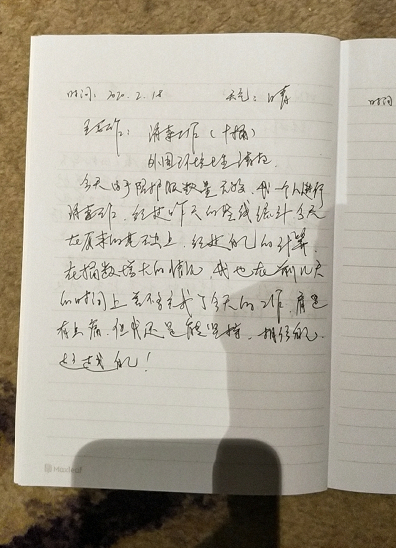 时间：2020.2.18 天气：晴
主要工作：消毒工作（十桶）
外围环境卫生清扫
今天由于防护服数量不够，我一个人进行
消毒工作，经过昨天的路线统计今天
在原来的基础上，经过自己的计算，
在桶数增大的情况，我也在前几天
的时间上差不多完成了今天的工作，肩还
有点痛，但我还是能坚持，相信自己，
超越自己！
Maxleaf
时间